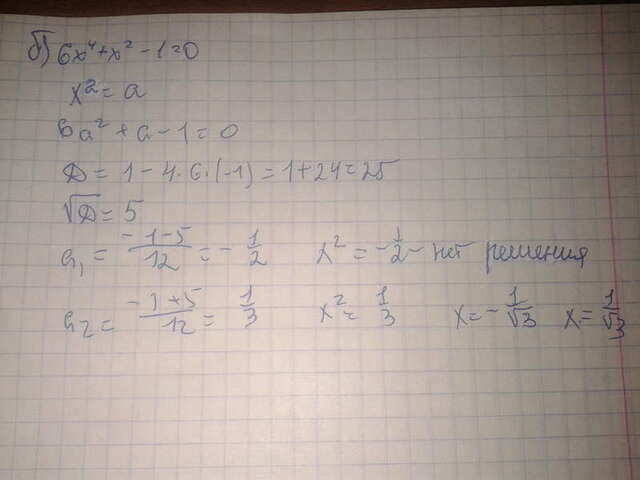 б) 6x⁴+x²-1=0
x²=a
6a²+a-1=0
D=1-4·6·(-1)=1+24=25
√D=5
a₁=(-1-5)/12=-1/2 x²=-1/2- нет решения
a₂=(-1+5)/12=1/3 x²=1/3 x=-1/√3 x=1/√3